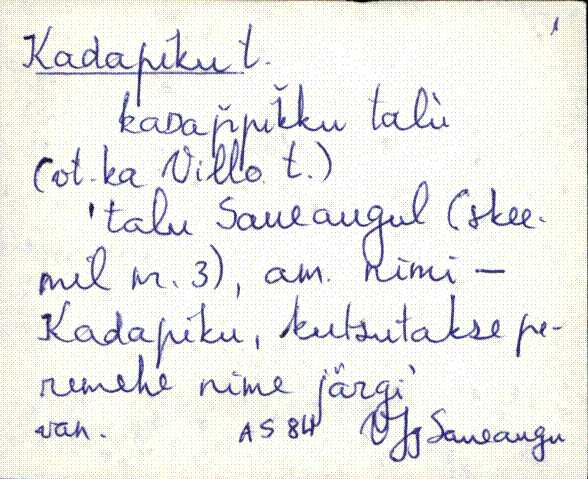 1
Kadapiku t.
kaᴅappikku talù
(vt. ka Villo t.)
'talu Saueaugul (skee-
mil nr. 3), am. nimi —
Kadapiku, kutsutakse pe-
remehe nime järgi'
van. AS 84 Saueaugu